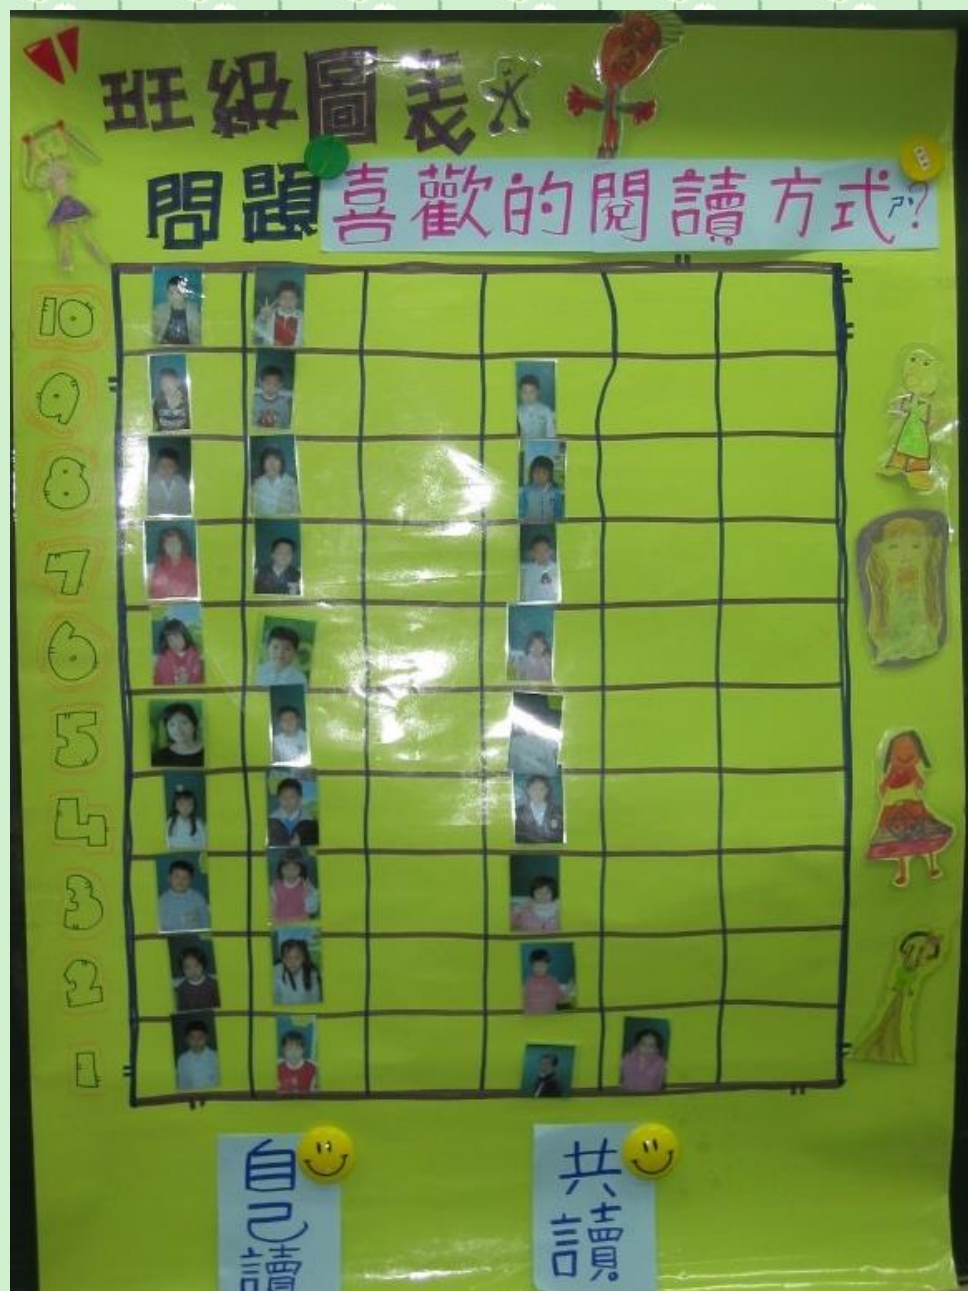 班級圖表
問題喜歡的閱讀方式?
10
9
8
7
6
5
4
3
2
1
自己讀
共讀